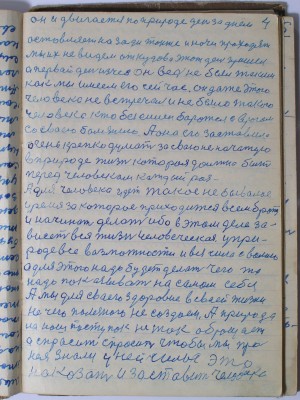 он и двигается по природе день за днем 4
оставляет на зади тоже и ночи проходят
мы их не видем откудова этот день пришел
а первый день
как мы имеем его сейчас, он даже этого
человека не встречал и не было такого
человека кто бы с ним боролся
со своею болезнию. А она его заставила
очень крепко думать за свою не начатую
в природе жизнь которая должна быть
перед человеком
А для человека идет такое не бывалое
время за которое приходится всем браться
и начинать делать ибо в этом деле за-
висет вся жизнь человеческая, у при-
роде все возможности и все силы с волею
а для этого надо будет делать чего то
надо показывать на самом себе
А мы для своего здоровие в своей жизни
ни чего полезного не создаем, А природа
на наш поступок не так обращает
а спросит спросит чтобы мы про
нея знали у ней силы это
наказать и заставить человека